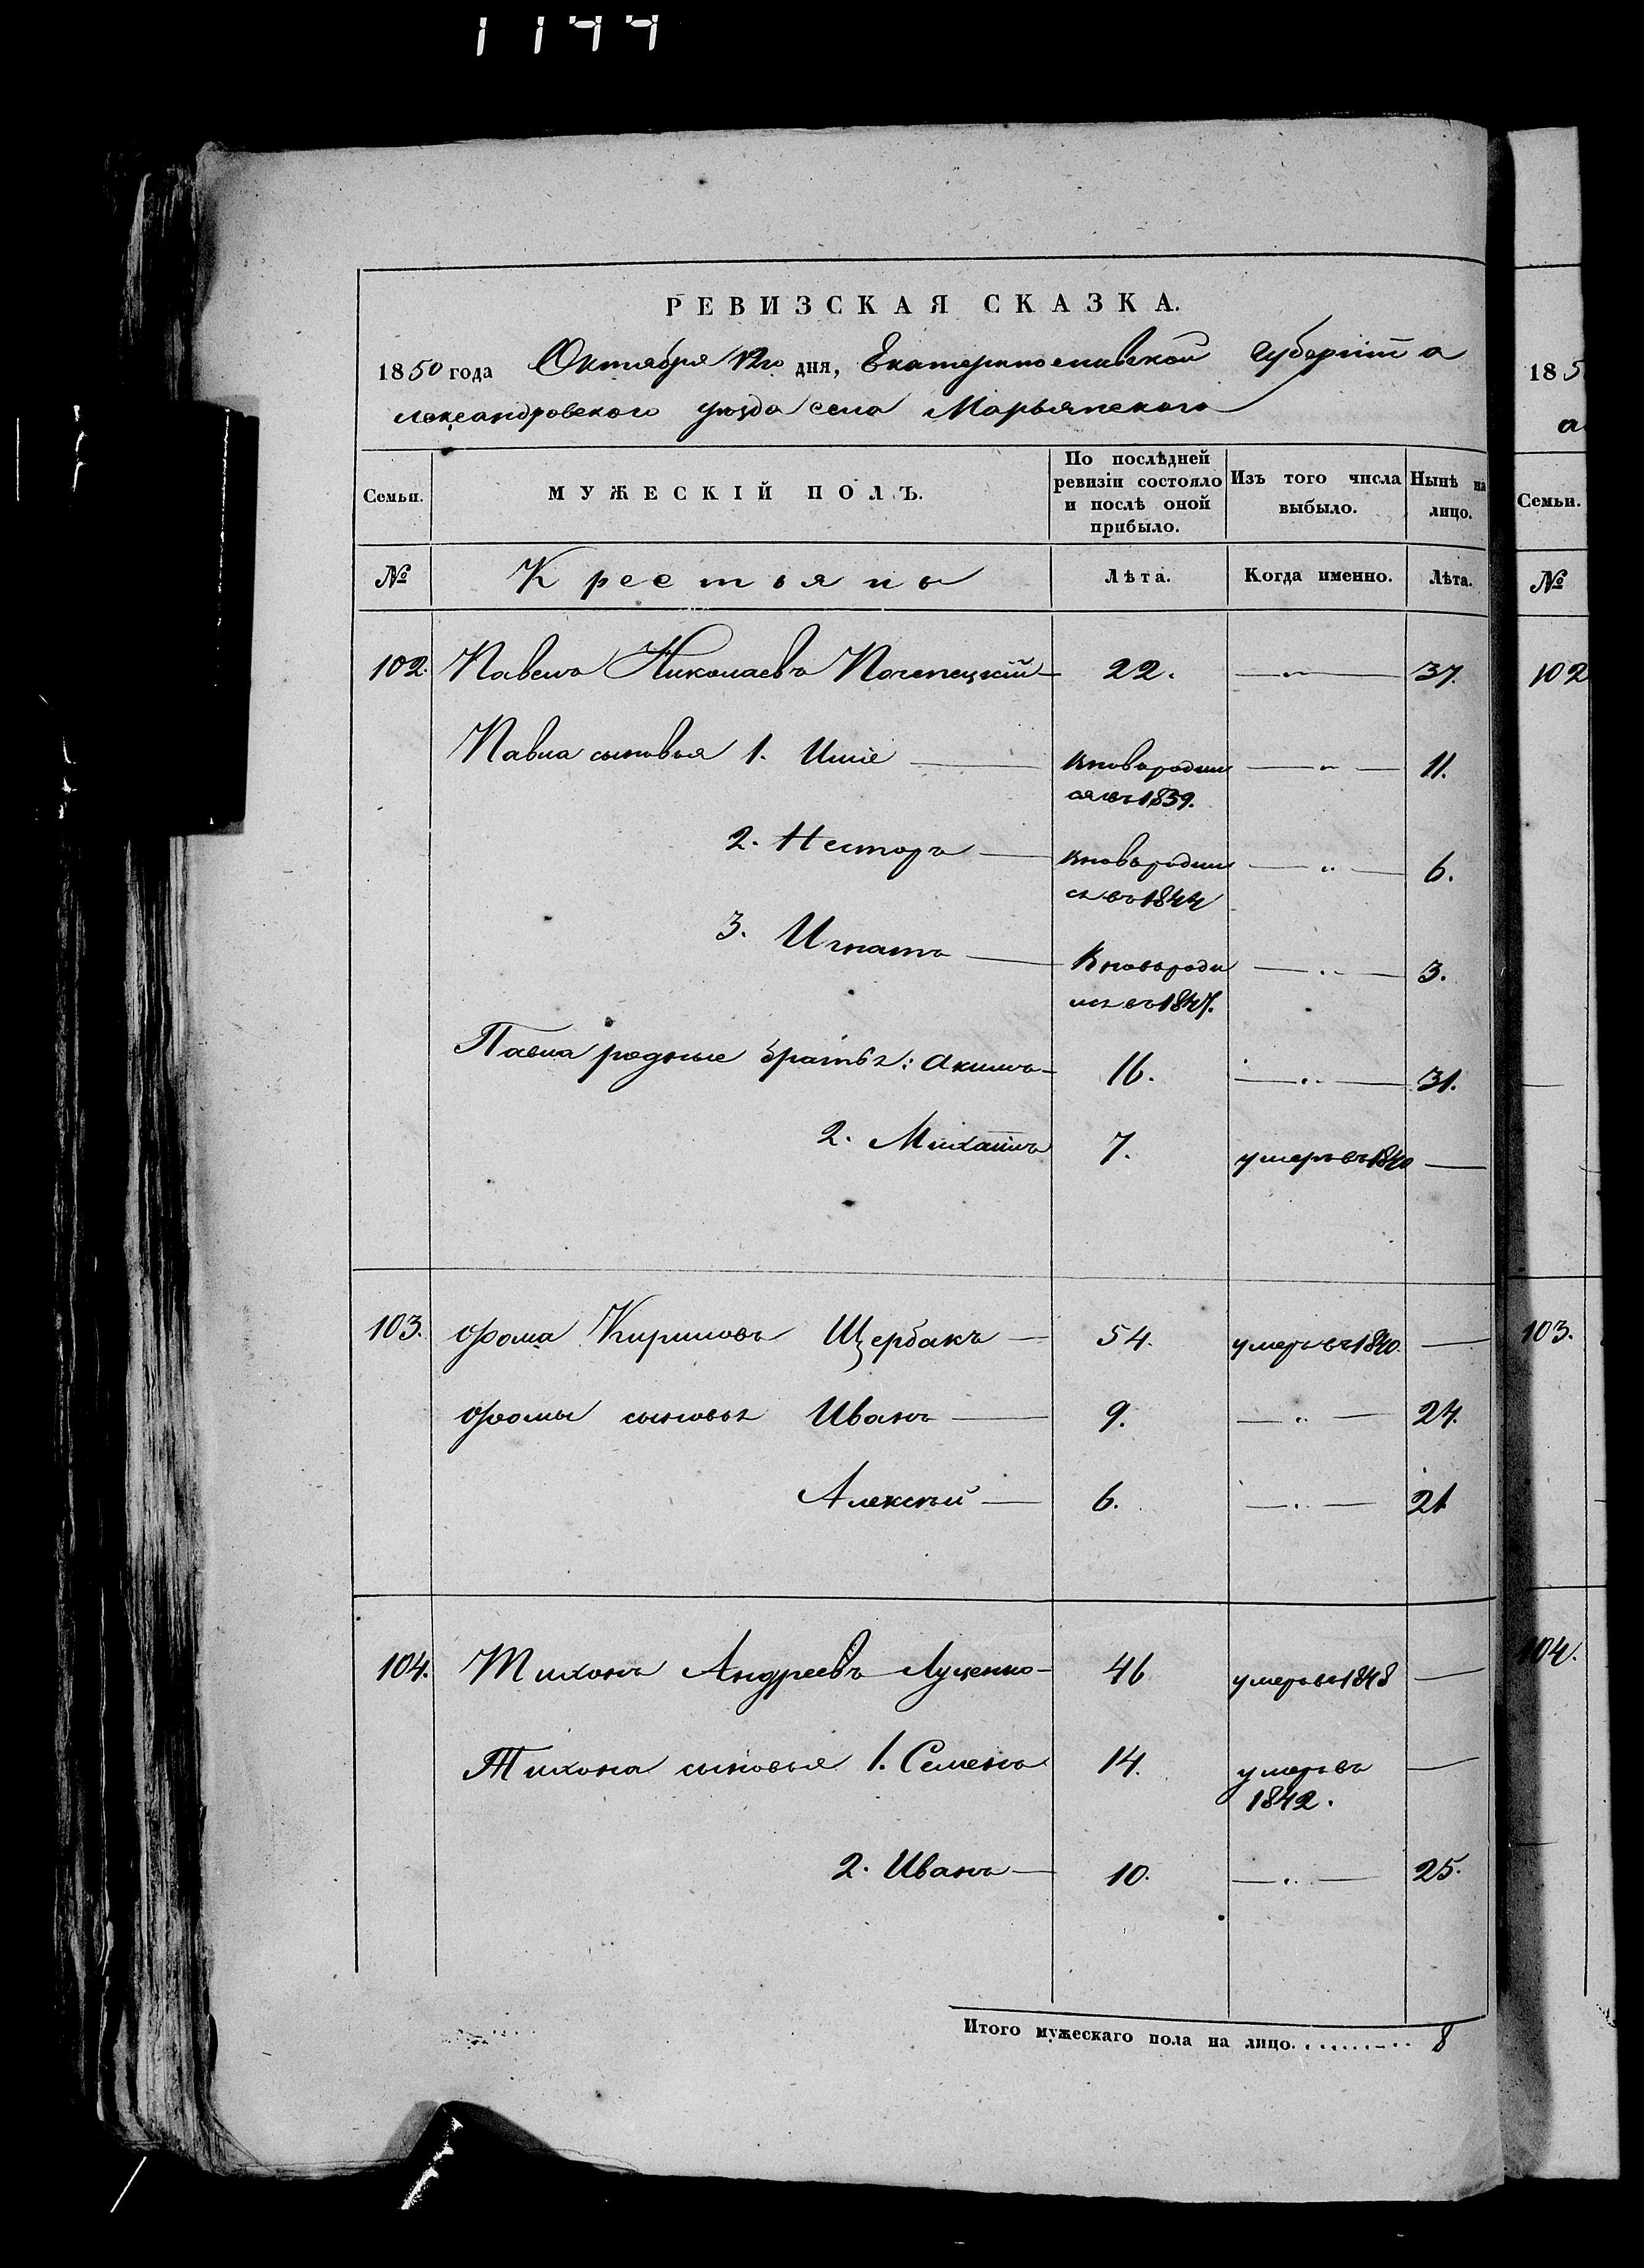 1144
РЕВИЗСКАЯ СКАЗКА.
1850 года Октября 12го дня, Екатеринославской Губерніи а
лександровского уезда села Марьянского
Семьи.
МУЖЕСКІЙ ПОЛЪ.
По послѣдней ревизіи состояло и послѣ оной прибыло.
Изъ того числа выбыло.
Нынѣ на лицо.
№ Крестьяны Лѣта. Когда именно. Лѣта.
102. Павелъ Николаевъ 22. —"— 37.
Павла сыновья 1. Илїе — вновородил —"— 11.
ся въ 1839.
2. Несторъ — вновородил —"— 6.
ся въ 1844
3. Игнатъ — Вновороди —"— 3.
лся въ 1847.
Павла родные братья: Акимъ — 16. —"— 31.
2. Михаилъ 7. умеръ въ 1840 —
103. Фома Кириловъ Щербакъ — 54. умеръ въ 1840. —
Фомы сыновья Иванъ — 9. —"— 24.
Алексѣй — 6. —"— 21
104. Тихонъ Андреевъ Луценко — 46 умеръ въ 1848 —
Тихона сыновья 1. Семенъ 14. умеръ въ —
1842.
2. Иванъ — 10. —"— 25.
Итого мужескаго пола на лицо. . . . . . . . . . 8
185
а
Семьи.
№
102
103.
104.